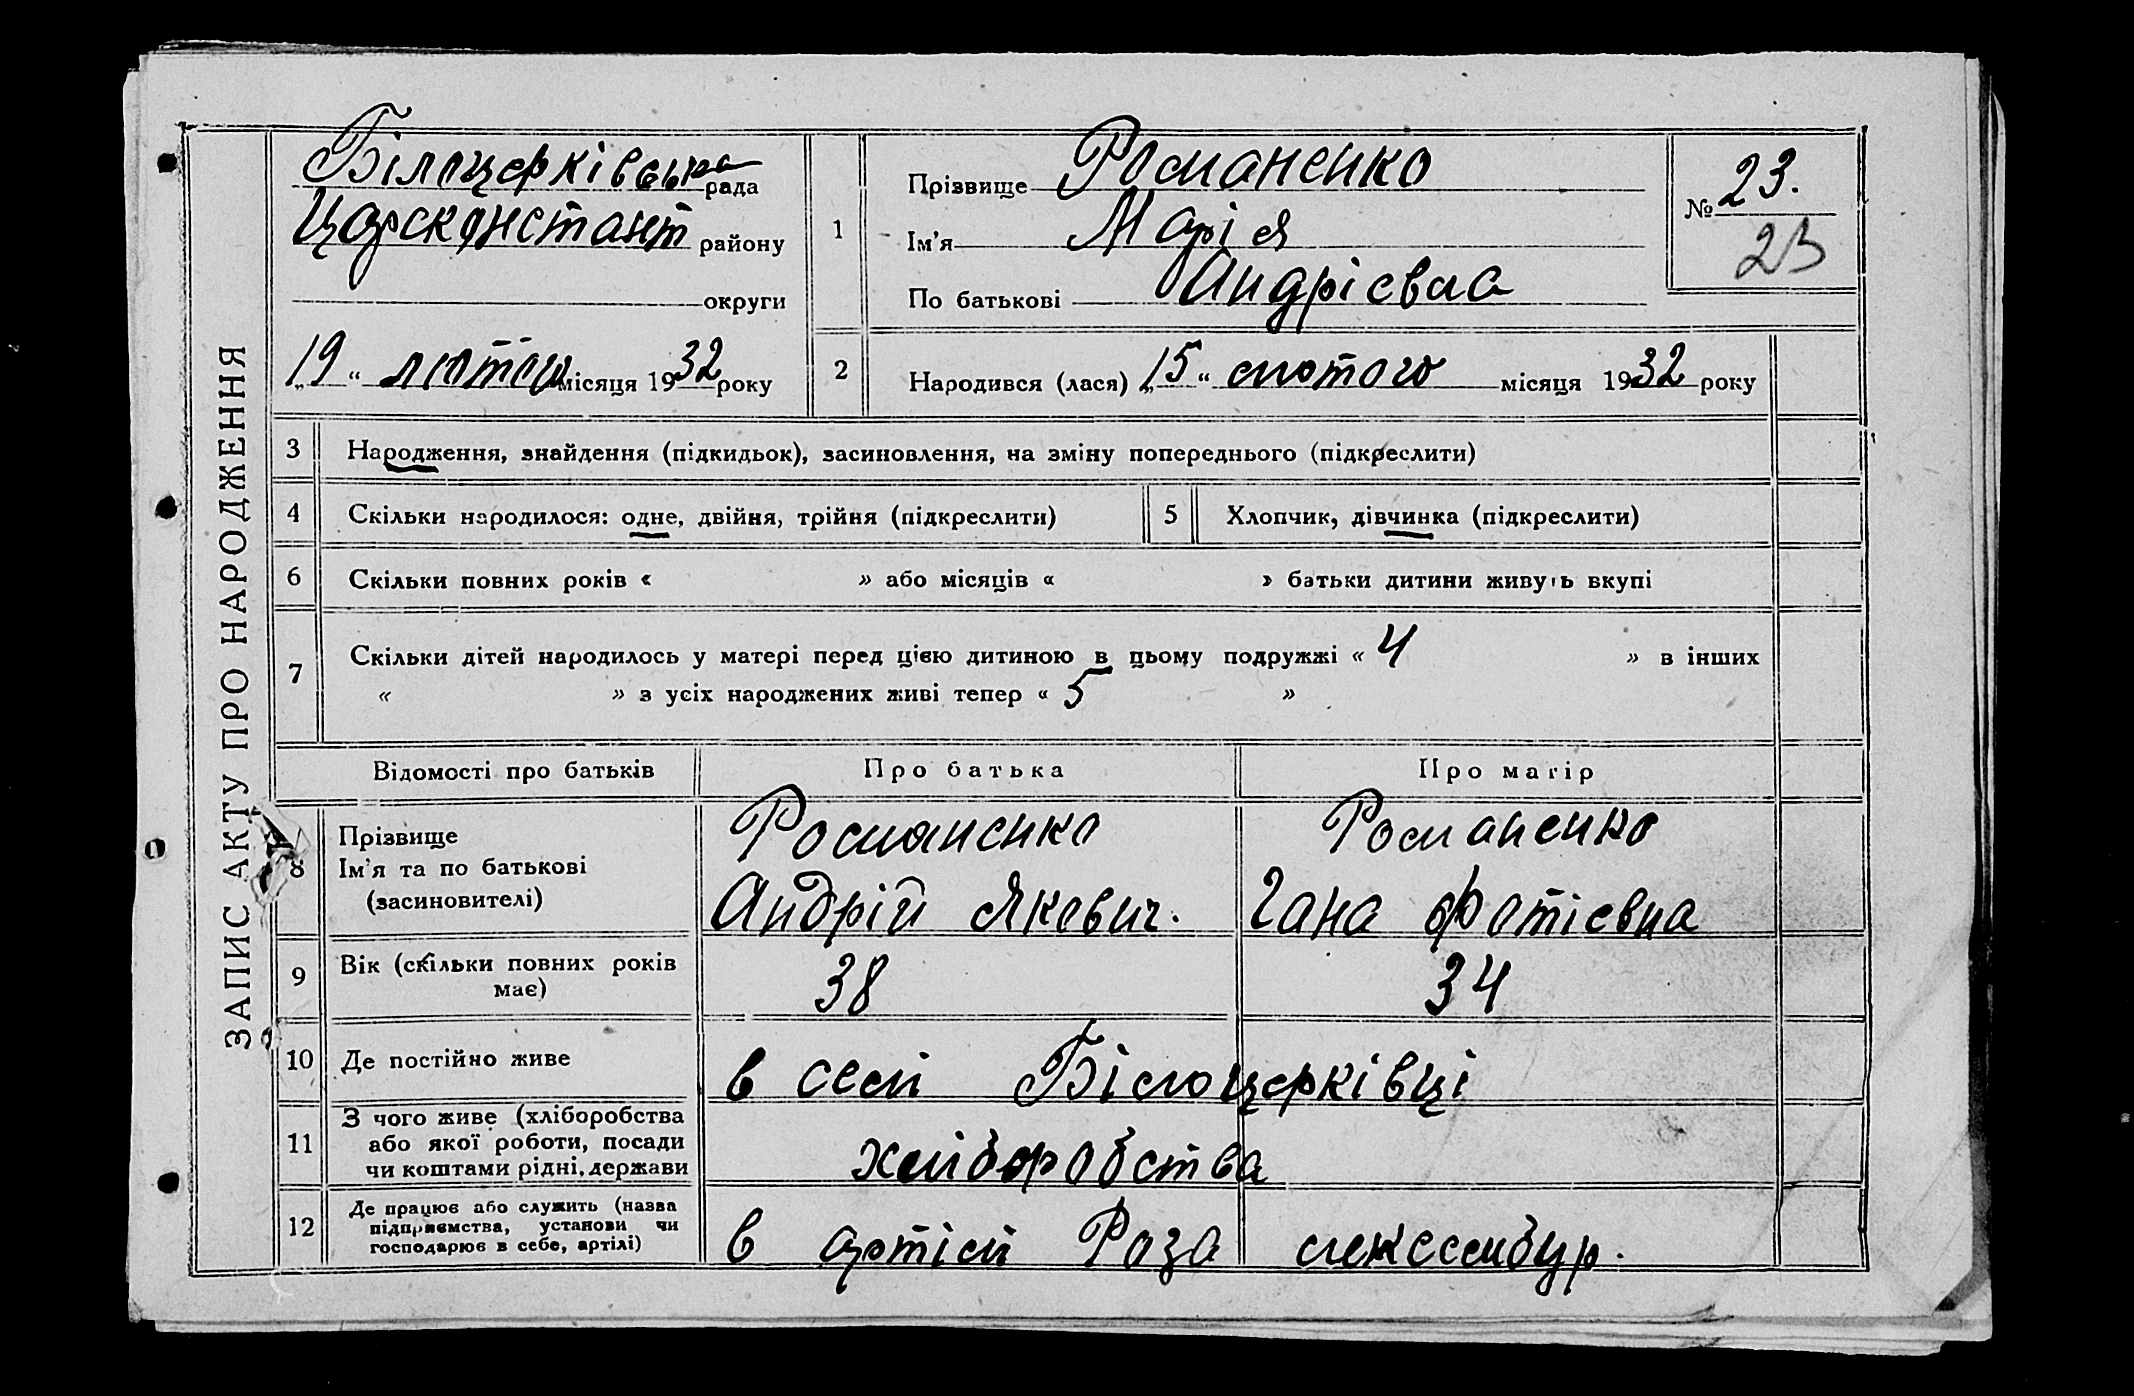 ЗАПИС АКТУ ПРО НАРОДЖЕННЯ
Білоцерківська рада
Царсконстант району
округи
„19“ лютого місяця 1932 року
1
Прізвище Романенко
Ім'я Марія
По батькові Андрієвна
№ 23.
23
2
Народився (лася) „15“ лютого місяця 1932 року
3 Народження, знайдення (підкидьок), засиновлення, на зміну попереднього (підкреслити)
4 Скільки народилося: одне, двійня, трійня (підкреслити)
5 Хлопчик, дівчинка (підкреслити)
6 Скільки повних років « » або місяців « » батьки дитини живуть вкупі
7 Скільки дітей народилось у матері перед цією дитиною в цьому подружжі « 4 » в інших
« » з усіх народжених живі тепер « 5 »
Відомості про батьків Про батька Про матір
8 Прізвище Романенко Романенко
Ім'я та по батькові Андрій Якович. Гана Фотієвна
(засиновителі)
9 Вік (скільки повних років має) 38 34
10 Де постійно живе в селі Білоцерківці
11 З чого живе (хліборобства
або якої роботи, посади
чи коштами рідні, держави хліборобства
12 Де працює або служить (назва
підприємства, установи чи
господарює в себе, артілі) в артілі Роза люксембур.